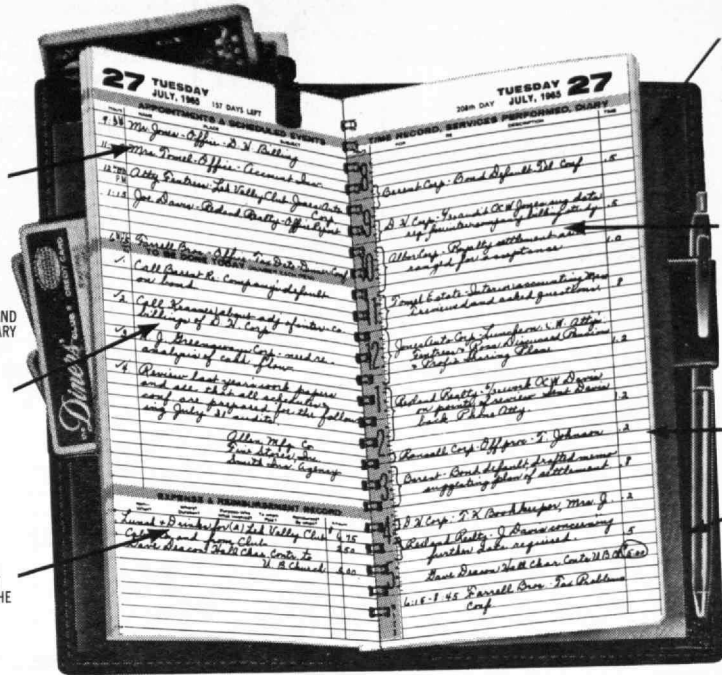 27 TUESDAY
JULY, 1965 157 DAYS LEFT
APPOINTMENTS & SCHEDULED EVENTS
HOURS NAME PLACE SUBJECT
Mr Jones - Office - D.W Billing
Mrs. Tomel - Office - Account Inv.
12:00 Atty Fentress - Leh Valley Club Jones Auto
PM Corp
1:15 Joe Davis - Roland Realty - Office
6:15 Farrell Bros - Office - Tax Data Dinner Conf
TO BE DONE TODAY
✓1 Call Barest Re. Company's default
on bond
✓2 Call about adj of inter-co.
billings of D.W. Corp.
✓3 H. J. Greenguam Corp. - need re.
analysis of cash flow
✓4 Review last year's work papers
and see that all schedules &
conf are prepared for the follow
ing July 31 audits.
Allen Mfg Co
Fine Stores, Inc
Smith Ins. Agency
EXPENSE & REIMBURSEMENT RECORD
Lunch + Drinks for (2) Leh Valley Club 6 75
to and from Club 2 50
Dave Deacon, Hall Char. Contr. to
U. B. Church 5.00
TUESDAY 27
208th DAY JULY, 1965
TIME RECORD, SERVICES PERFORMED, DIARY
DESCRIPTION TIME
8 Barest Corp - Bond Default Tel. Conf .5
9 D.W Corp - Jones
inter company billing .5
10 Royalty settlement
ranged for acceptance 1.0
11 Tomel Estate - Interim accounting Mrs
T reviewed and asked questions .8
12 Jones Auto Corp - Luncheon Atty.
Fentress & Ross Discussed Pension
& Profit Sharing Plans 1.2
1 Roland Realty - Davis
on points of review sent Davis
back. Phone Atty. 1.2
2 Ransall Corp - Off - T. Johnson .2
3 Barest - Bond default drafted memo
suggesting plan of settlement .8
4 D.W Corp - Bookkeeper, Mrs. J .2
Roland Realty - J Davis concerning
further data required. .5
Gave Deacon Hall Char. Contr U B Ch 5.00
6:15-8:45 Farrell Bros - Tax Problems
Conf
Diners' CLUB CREDIT CARD
AND
ARY
HE